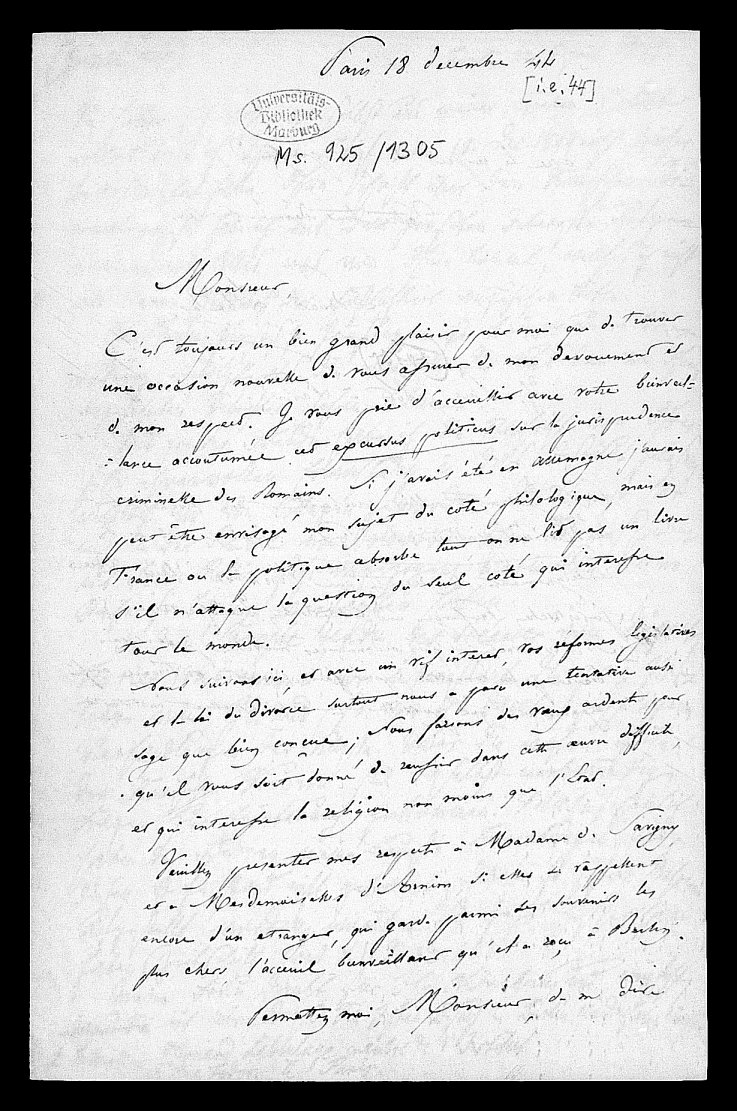 Paris 18 decembre 44
[i.e. 44]
Universitäts-
Bibliothek
Marburg
Ms. 925/1305
Monsieur
C'est toujours un bien grand plaisir pour moi que de trouver
une occasion nouvelle de vous assurer de mon devouement et
de mon respect. Je vous prie d'acceuillir avec votre bienveil=
=lance accoutumée cet excursus politicus sur la jurisprudence
criminelle des Romains. Si j'avais été en Allemagne j'aurais
peut être envisagé mon sujet du coté philologique, mais en
France ou la politique absorbe tout on ne lit pas un livre
s'il n'attaque la question du seul coté qui interesse
tout le monde.
Nous suivons ici, et avec un vif interet, vos réformes législatives
et la loi du divorce surtout nous a paru une tentative aussi
sage que bien concue; Nous faisons des vœux ardents pour
qu'il vous soit donné de reussir dans cette œuvre difficile,
et qui interesse la religion non moins que l'Etat.
Veuillez presenter mes respects à Madame de Savigny
et a Mesdemoiselles d'Arnim si elles se rappellent
encore d'un etranger, qui garde parmi ses souvenirs les
plus chers l'acceuil bienveillant qu'il a reçu à Berlin.
Permettez moi, Monsieur, de me dire